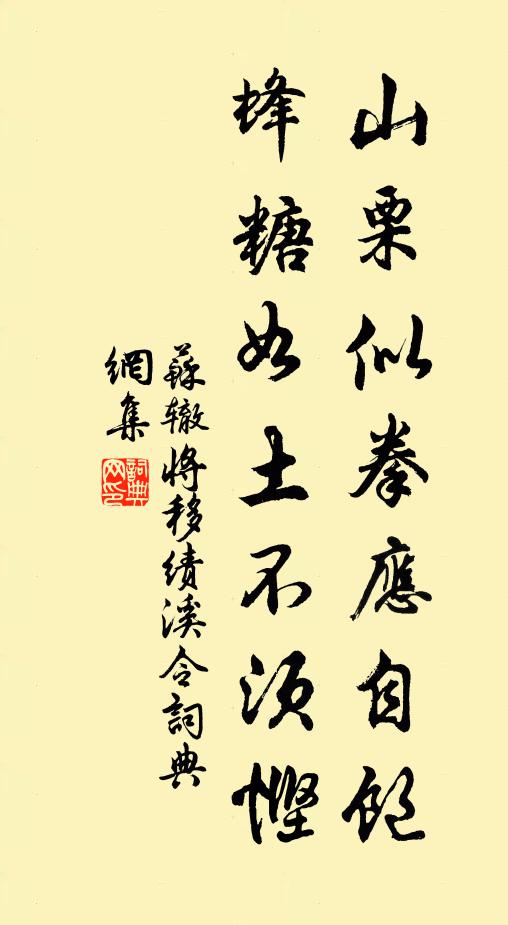 山栗似拳應自飽
蜂糖如土不須慳
蘇辙將移績溪令詞典
網集
詞典網印